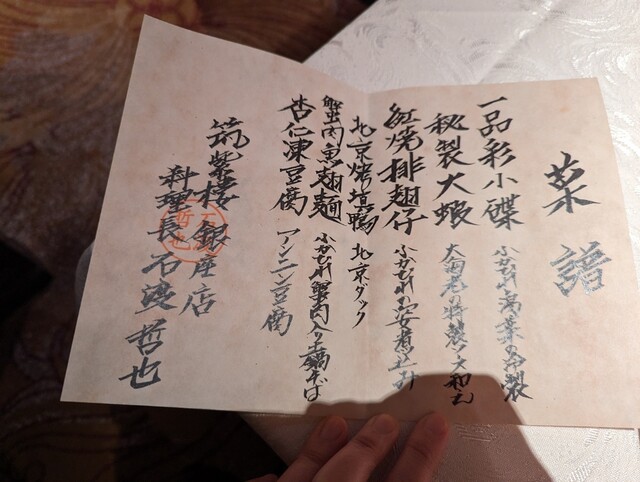 菜譜
一品彩小碟 ふかひれ前菜の冷製
秘製大蝦 大海老の特製ソース和え
紅焼排翅仔 ふかひれの姿煮込み
北京焼填鴨 北京ダック
蟹肉魚翅麺 ふかひれ蟹肉入り土鍋そば
杏仁凍豆腐 アンニン豆腐
筑紫樓 銀座店
料理長 石渡 哲也